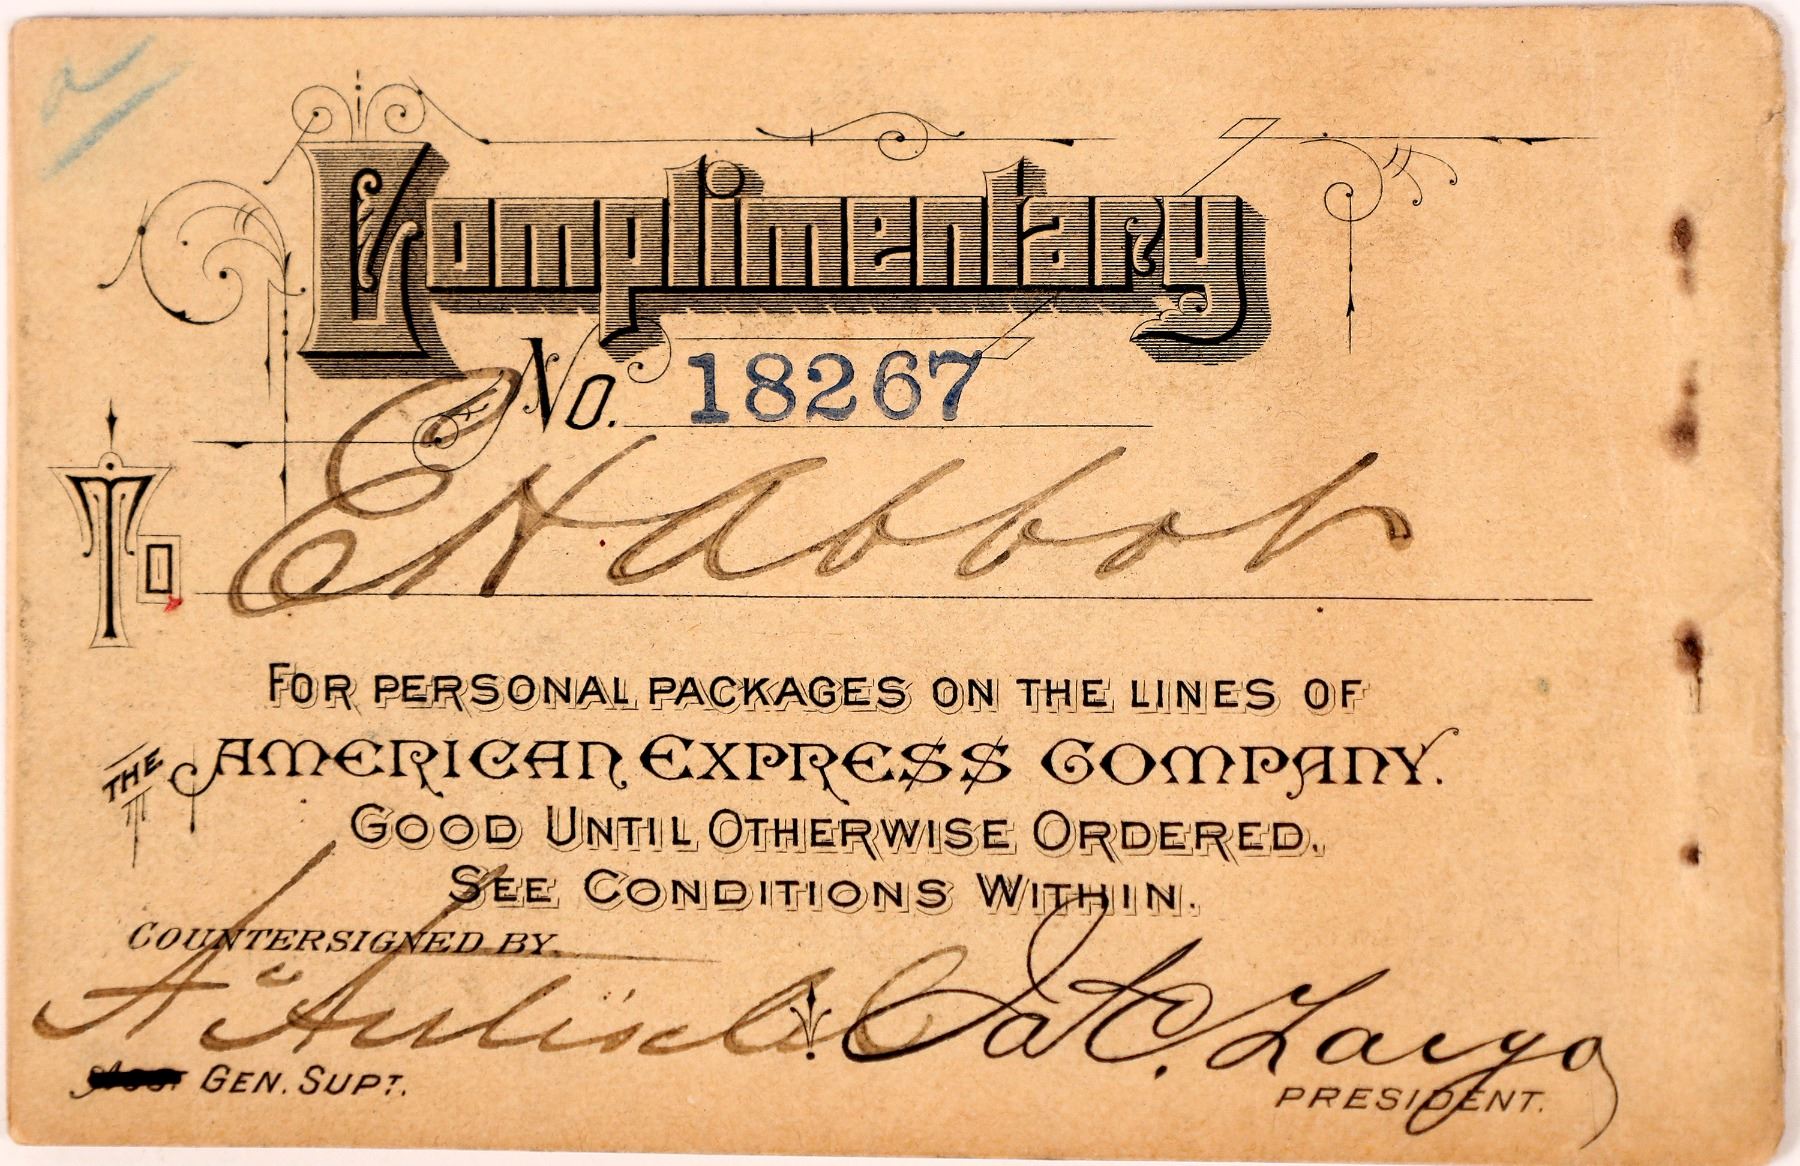 a
Complimentary
No. 18267
To E H Abbot
FOR PERSONAL PACKAGES ON THE LINES OF
THE AMERICAN EXPRESS COMPANY.
GOOD UNTIL OTHERWISE ORDERED.
SEE CONDITIONS WITHIN.
COUNTERSIGNED BY
Jas C. Fargo
GEN. SUPT.
PRESIDENT.